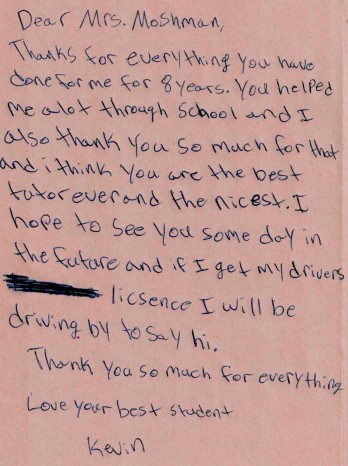 Dear Mrs. Moshman,
Thanks for everything you have
done for me for 8 years. You helped
me alot through School and I
also thank you so much for that
and i think you are the best
tutor ever and the nicest. I
hope to see you some day in
the future and if I get my drivers
licsence I will be
driving by to say hi.
Thank you so much for everything
Love your best student
Kevin